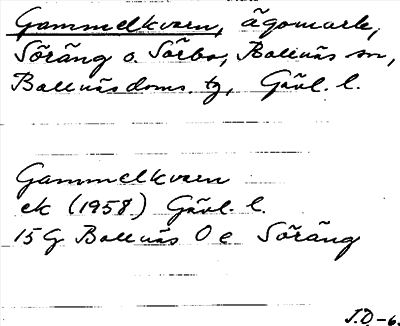 Gammelkvarn, ägomark,
Söräng o. Sörbo, Bollnäs sn,
Bollnäsdoms. tg, Gävl. l.
Gammelkvarn
ek (1958) Gävl. l.
15 G Bollnäs 0 e Söräng
J.Ö.-6.